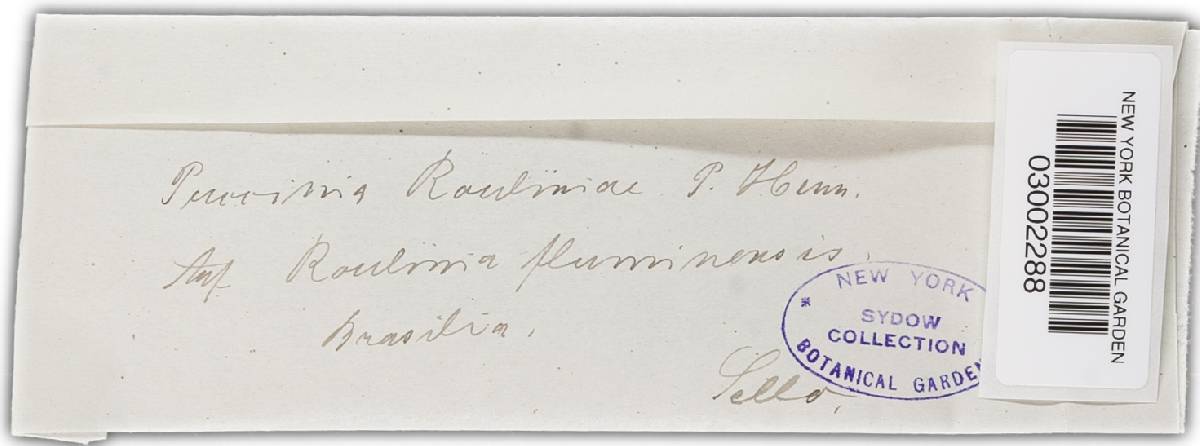 Puccinia Rouliniae P. Henn.
Auf Roulinia fluminensis.
Brasilia.
Sello.
NEW YORK
SYDOW
COLLECTION
BOTANICAL GARDEN
NEW YORK BOTANICAL GARDEN
03002288